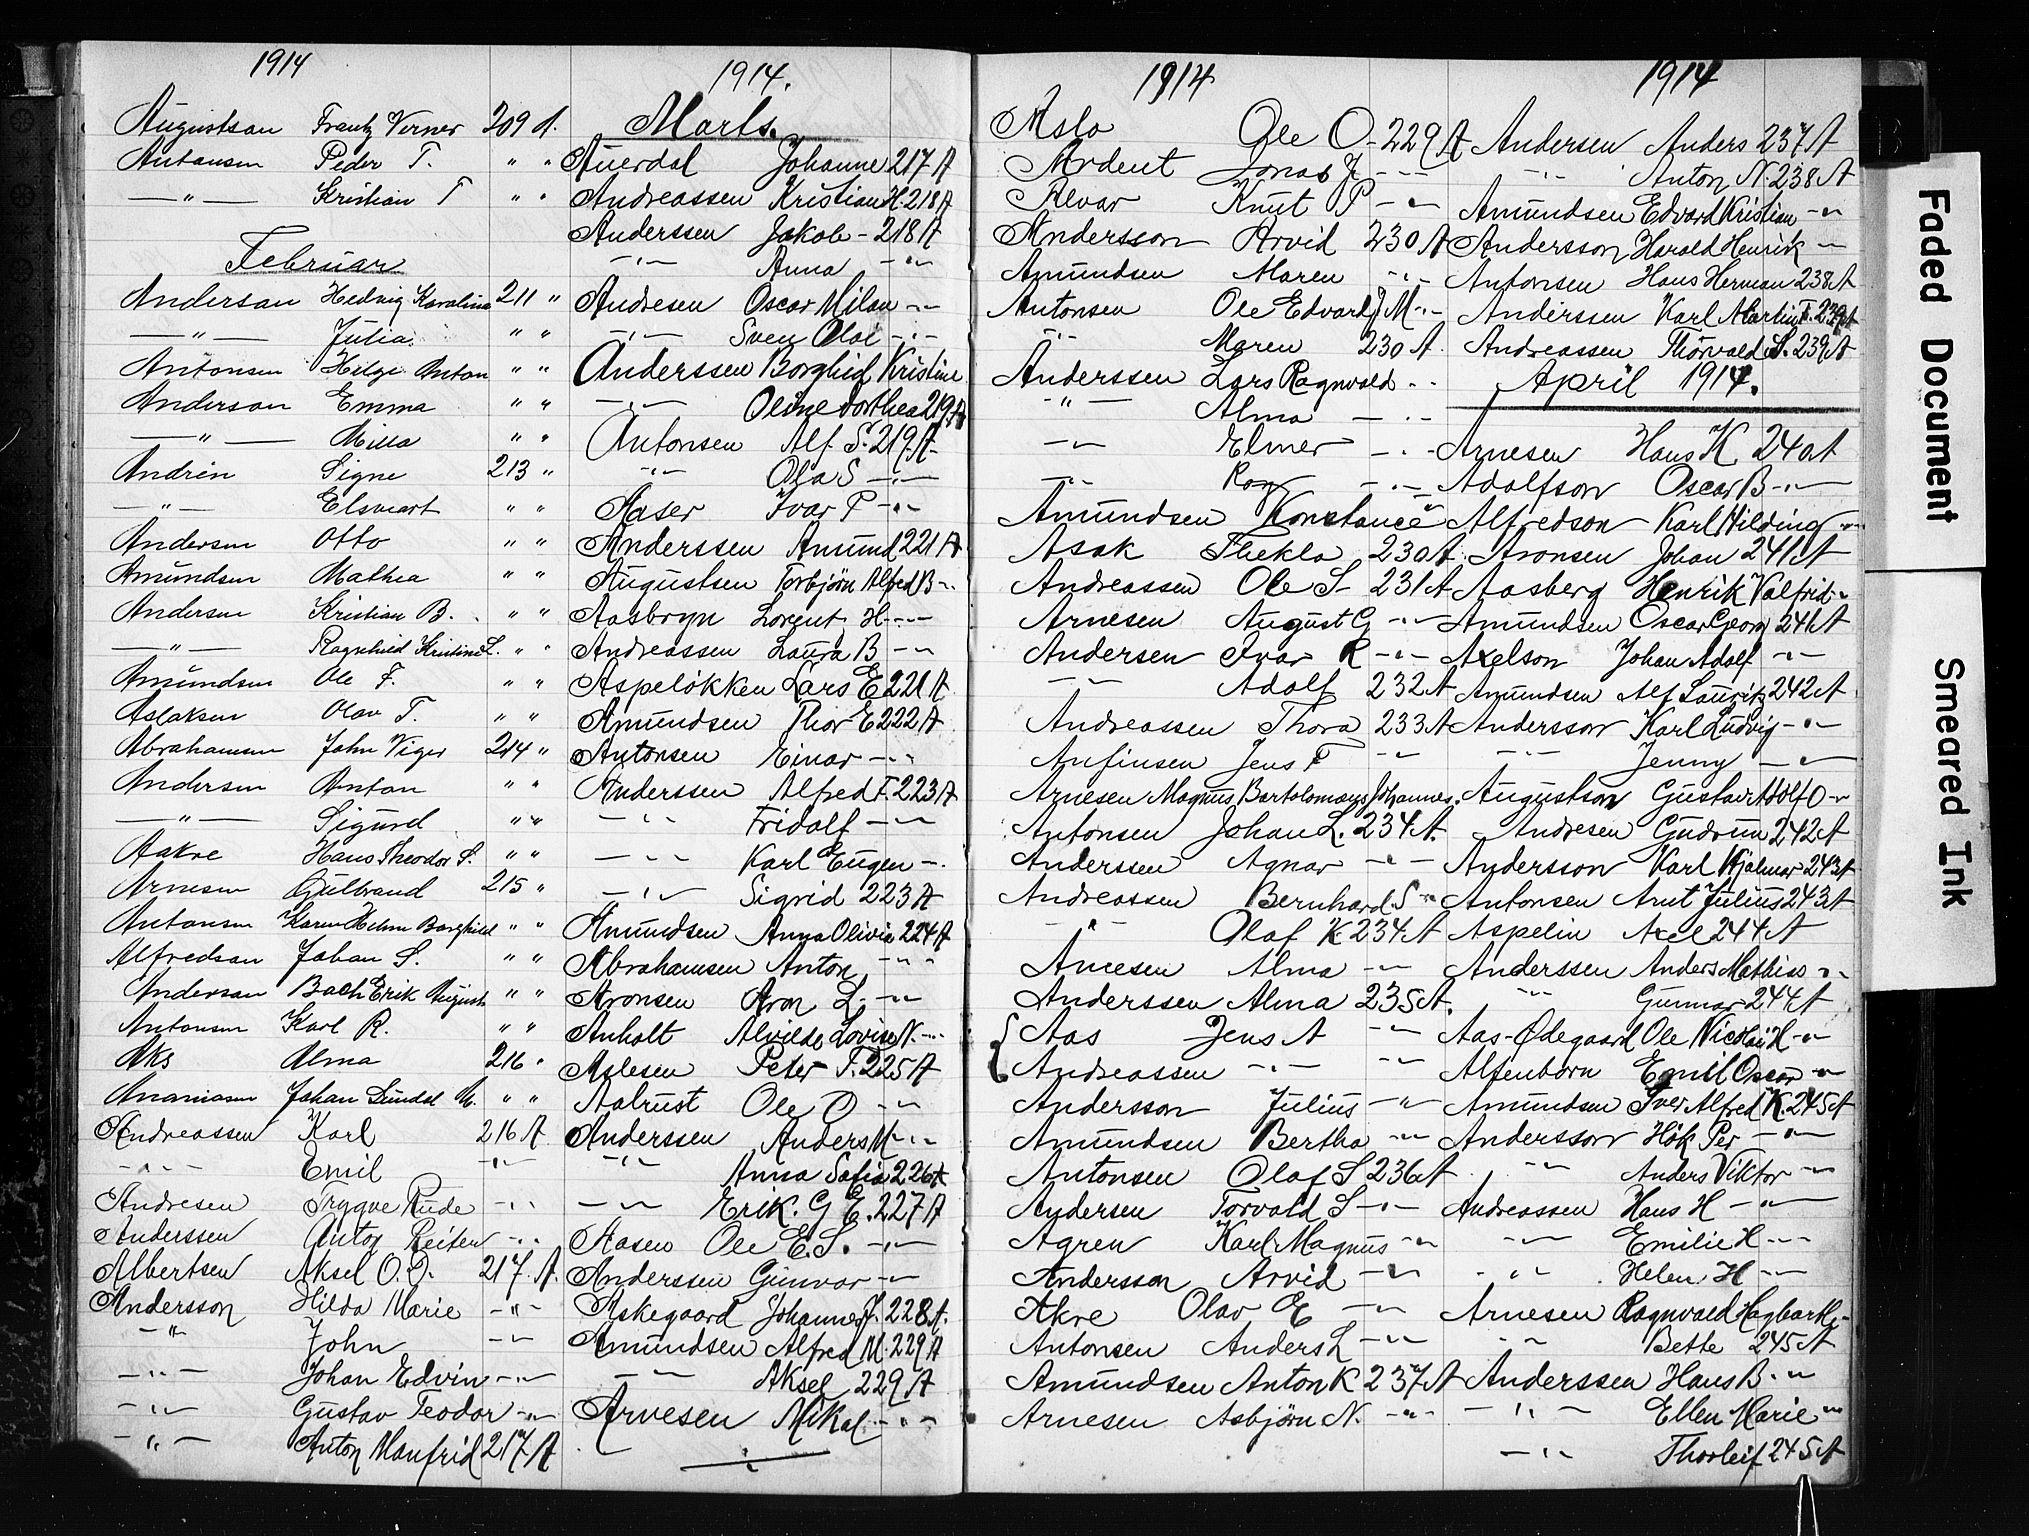 1914
Augustson Frantz Verner 209 A.
Antonsen Peder T. " "
—"— Kristian T " "
Februar
Anderson Hedvig Karolina 211 "
—"— Julia " "
Antonsen Helge Anton " "
Anderson Emma " "
—"— Missa " "
Andrén Signe 213 "
—"— Elsviart " "
Andersen Otto " "
Amundsen Mathea " "
Andersen Kristian B. " "
—"— Ragnhild Kristine L. " "
Amundsen Ole F. " "
Aslaksen Olav T. " "
Abrahamsen John Viger 214 "
Andersen Anton " "
—"— Sigurd " "
Aakre Hans Theodor S. " "
Arnesen Gulbrand 215 "
Antonsen Karen Helene Borghild " "
Alfredson Johan S. " "
Anderson Bach Erik August " "
Antonsen Karl R. " "
Aks Alma 216 "
Ananiasen Johan Sundal M. " "
Andreassen Karl 216 A
-"- Emil -"-
Andresen Trygve Rude -"-
Anderssen Anton Reiten -"-
Albertsen Aksel O.O. 217 A.
Andersson Hilda Marie -"-
-"- John -"-
-"- Johan Edvin -"-
-"- Gustav Teodor -"-
-"- Anton Manfrid 217 A
1914.
Marts.
Auerdal Johanne 217 A
Andreassen Kristian H. 218 A
Anderssen Jakob - 218 A
-"- Anna -"-
Andresen Oscar Milan -"-
-"- Sven Olal -"-
Anderssen Borghild Kristine
-"- Oline Dorthea 219 A
Antonsen Alf S. 219 A-
-"- Ola S -"-
Aaser Ivar P -"-
Anderssen Amund 221 A
Augustsen Torbjörn Alfred B -"-
Aasbryn Lorentz H -"-
Andreassen Laura B -"-
Aspeløkken Lars E 221 A
Amundsen Thor E 222 A
Antonsen Einar -"-
Anderssen Alfred F. 223 A
-"- Fridolf -"-
-"- Karl Eugen -"-
-"- Sigrid 223 A
Amundsen Anna Olivia 224 A
Abrahamsen Anton -"-
Aronsen Aron L. -"-
Anholt Alvilde Lovise N. -"-
Aslesen Peter T. 225 A
Aalrust Ole O -"-
Anderssen Anders M -"-
-"- Anna Sofia 226 A
-"- Erik. G E. 227 A
Aasen Ole E.S. -"-
Anderssen Gunvor -"-
Askegaard Johannes J. 228 A.
Amundsen Alfred M. 229 A
-"- Aksel 229 A
Arvesen Mikal -"-
1914
Aslo Ole O - 229 A
Ardent Jonas J. -"-
Alvar Knut P -"-
Andersson Arvid 230 A
Amundsen Maren -"-
Antonsen Ole Edvard J M -"-
-"- Maren 230 A.
Anderssen Lars Ragnvald -"-
-"- Alma -"-
-"- Elmer -"-
-"- Roy -"-
Amundsen Konstance "
Asak Thekla 230 A
Andreassen Ole S- 231 A
Arnesen August G -"-
Andersen Ivar R -"-
-"- Adolf 232 A
Andreassen Thora 233 A
Anfinsen Jens F -"-
Arnesen Magnus Bartolomæus Johannes.
Antonsen Johan L. 234 A.
Anderssen Agnar -"-
Andreassen Bernhard S -"-
-"- Olaf K. 234 A
Arnesen Alma -"-
Anderssen Alma 235 A.
Aas Jens A -"-
Andreassen -"- -"-
Andersson Julius -"-
Amundsen Bertha -"-
Antonsen Olaf S 236 A
Andersen Torvald S -"-
Agren Karl Magnus -"-
Andersson Arvid -"-
Akre Olav E -"-
Antonsen Anders L -"-
Amundsen Anton K 237 A
Arnesen Asbjörn N. -"-
1914
Andersen Anders 237 A
-"- Anton N. 238 A
Amundsen Edvard Kristian -"-
Andersson Harald Henrik -"-
Antonsen Hans Herman 238 A
Anderssen Karl Martin T. 239 A
Andreassen Thorvald S. 239 A
April 1914.
Arnesen Hans K 240 A
Adolfson Oscar B -"-
Alfredson Karl Hilding -"-
Aronsen Johan 241 A
Aasberg Henrik Valfrid -"-
Amundsen Oscar Georg 241 A
Axelson Johan Adolf -"-
Amundsen Alf Lauritz 242 A
Andersson Karl Ludvig -"-
-"- Jenny -"-
Augustson Gustav Adolf O -"-
Andresen Gudrun 242 A
Andersson Karl Hjalmar 243 A
Antonsen Arnt Julius 243 A
Aspelin Axel 244 A
Anderssen Anders Mathias -"-
-"- Gunnar 244 A
Aas-Ødegaard Ole Nicolai H -"-
Alfenborn Emil Oscar -"-
Amundsen Iver Alfred K. 245 A
Andersson Hök Per -"-
-"- Anders Viktor -"-
Andreassen Hans H -"-
-"- Emilie H -"-
-"- Helen H -"-
Arnesen Ragnvald Hagbarth -"-
-"- Bette 245 A
Anderssen Hans B. -"-
-"- Ellen Marie -"-
-"- Thorleif 245 A
B
Faded Document
Smeared Ink